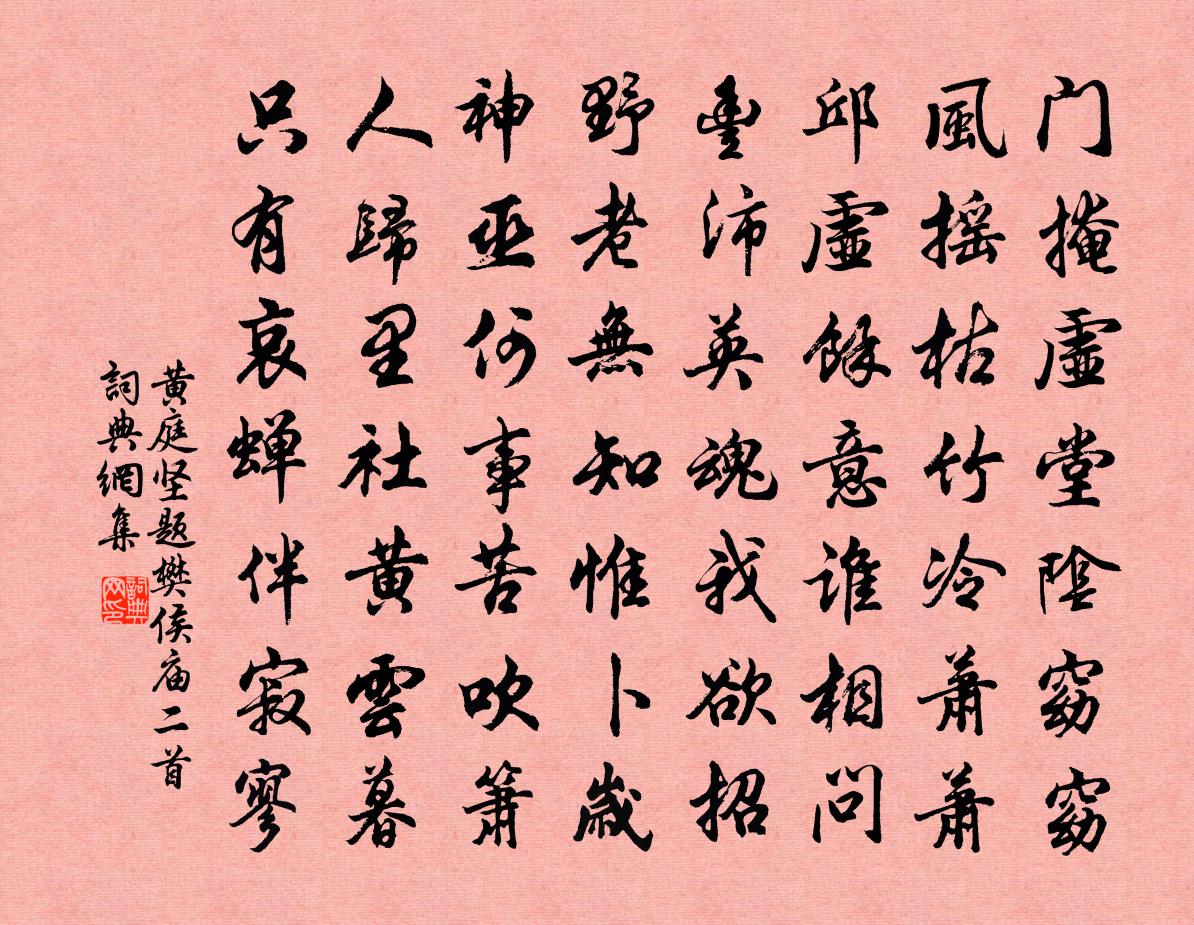 门掩虛堂陰窈窈
風摇枯竹冷蕭蕭
邱虛餘意誰相問
豊沛英魂我欲招
野老無知惟卜歲
神巫何事苦吹簫
人歸里社黄雲暮
只有哀蝉伴寂寥
黄庭坚题樊侯庙二首
詞典網集
詞典网印